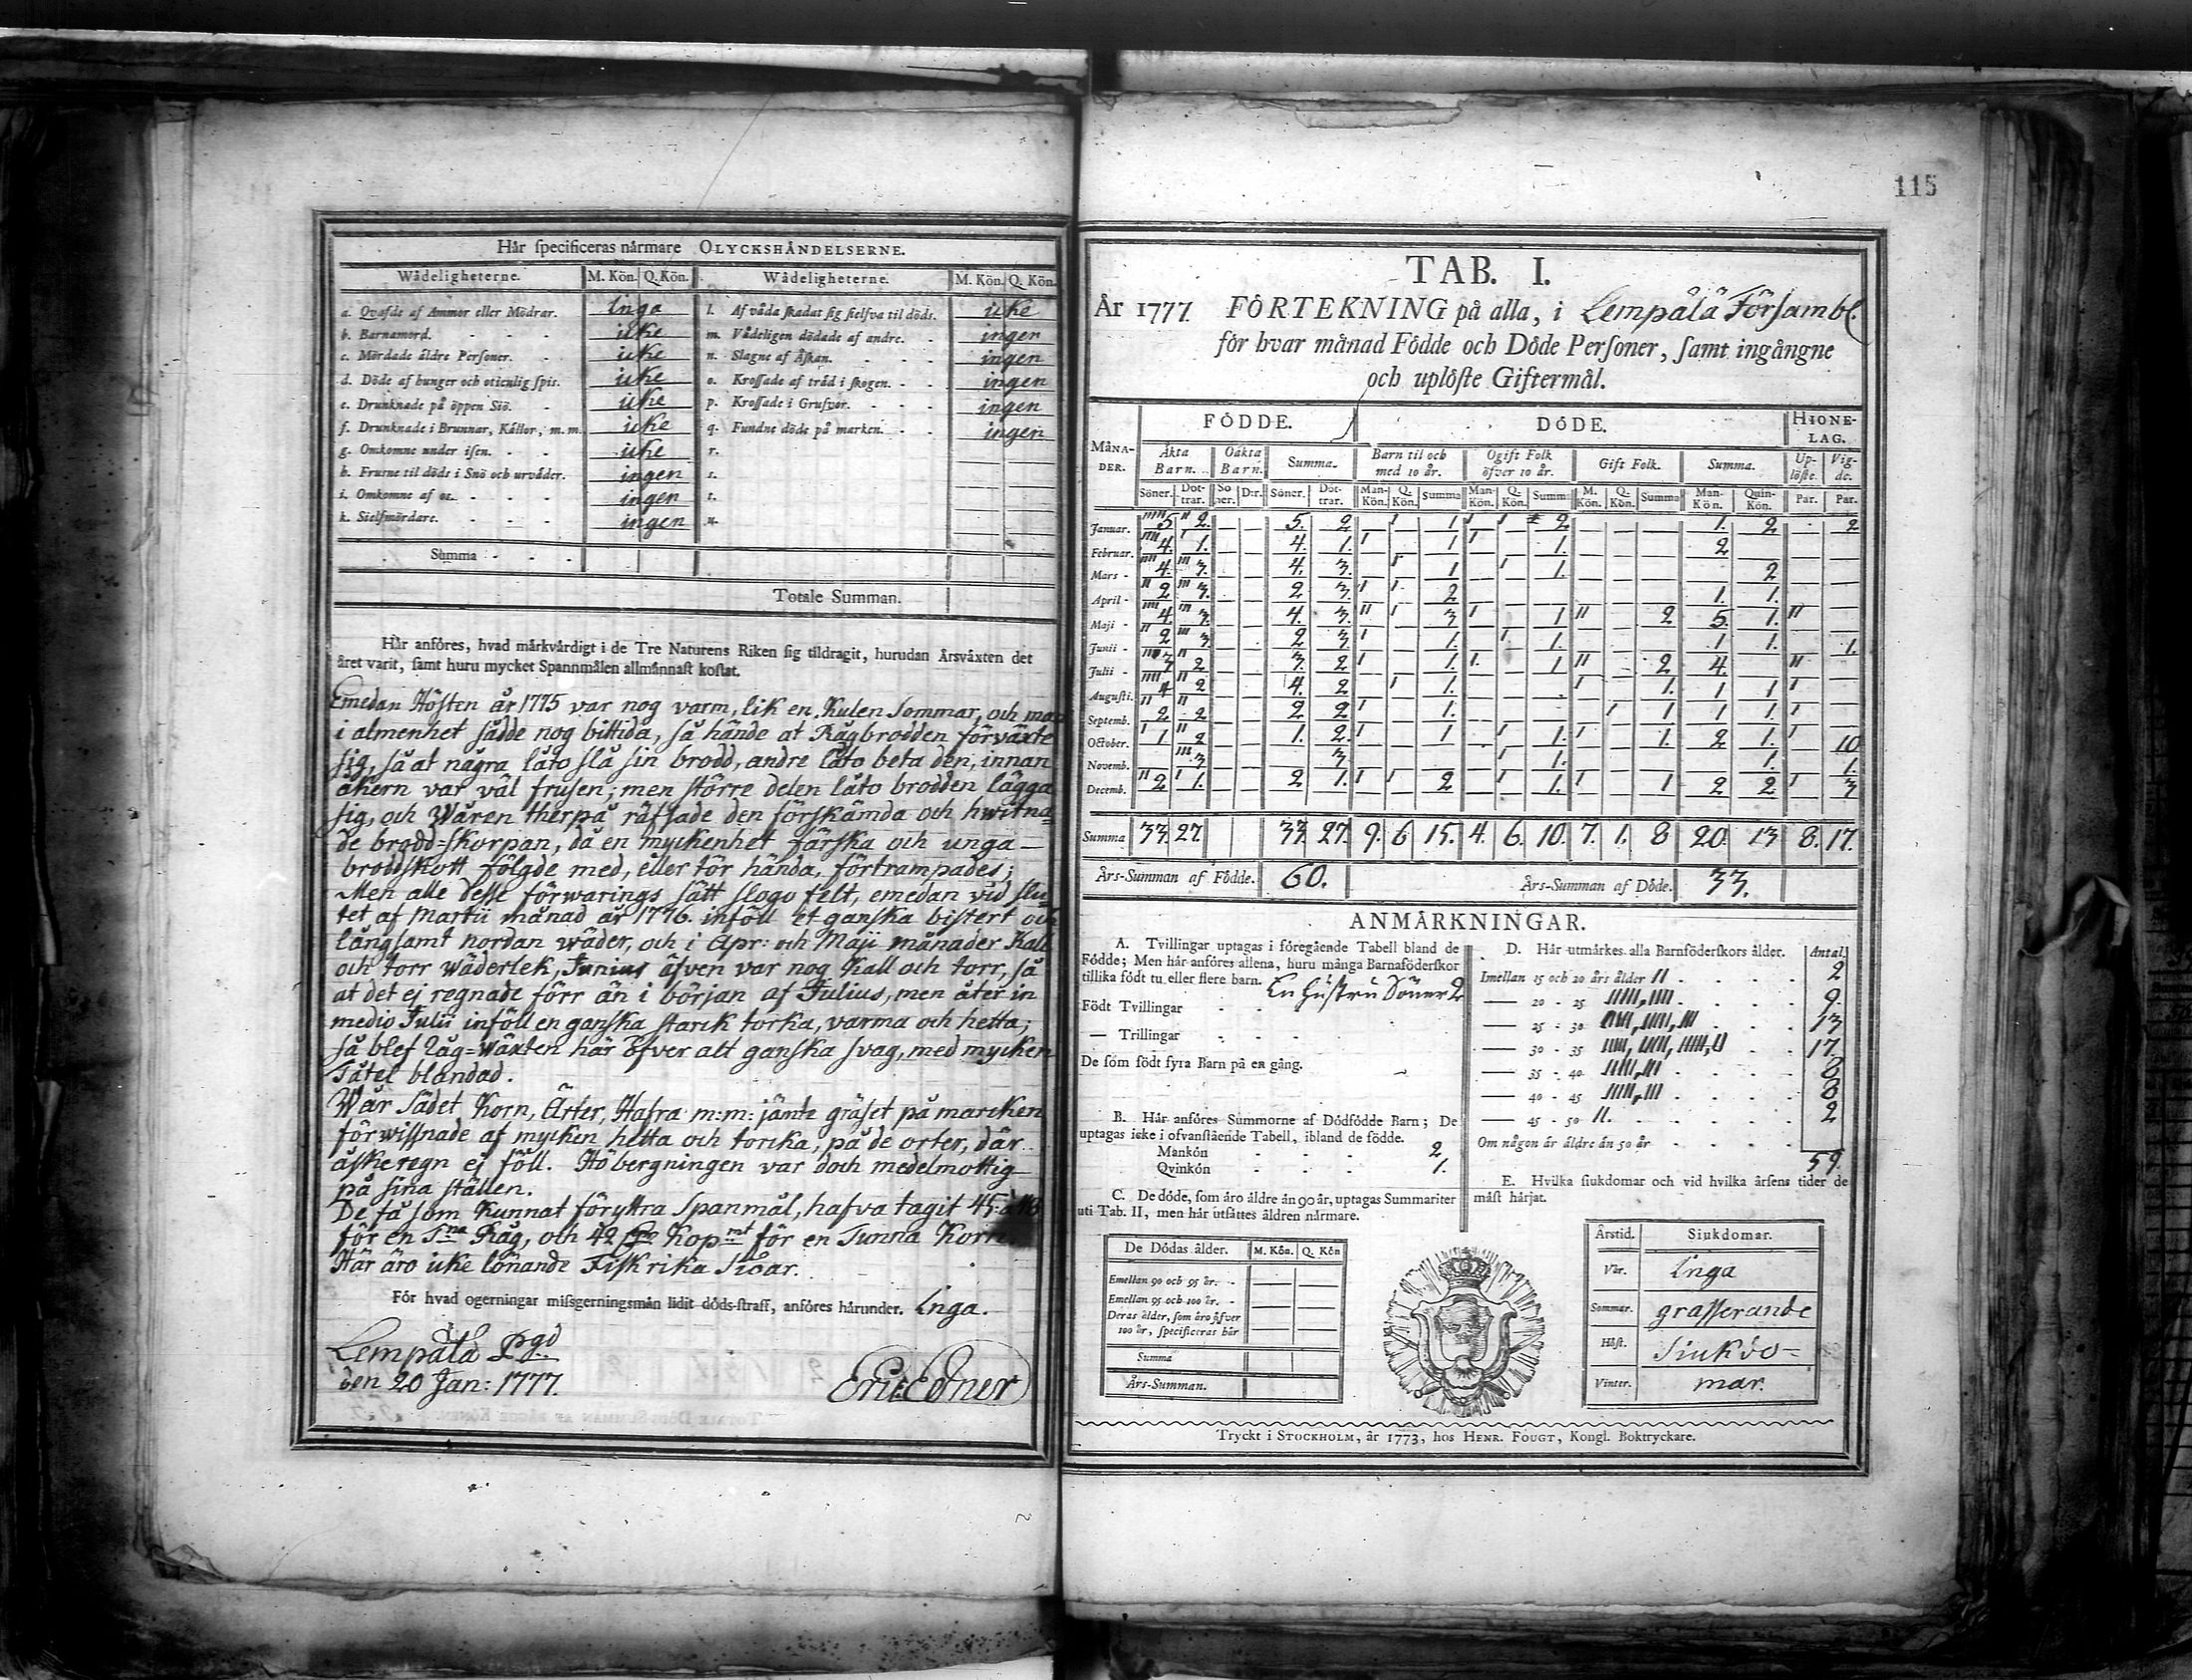 Här specificeras närmare OLYCKSHÄNDELSERNE.
Wådeligheterne. M. Kön. Q. Kön. Wådeligheterne. M. Kön. Q. Kön.
a. Qvafde af Ammor eller Mödrar. Inga l. Af våda skadat sig sielfva til döds. icke
b. Barnamord. icke m. Vådeligen dödade af andre. ingen
c. Mördade äldre Personer. icke n. Slagne af Åskan. ingen
d. Döde af hunger och otienlig spis. icke o. Krossade af träd i skogen. ingen
e. Drunknade på öppen Siö. icke p. Krossade i Grufvor. ingen
f. Drunknade i Brunnar, Källor, m. m. icke q. Fundne döde på marken. ingen
g. Omkomne under isen. icke r.
h. Frusne til döds i Snö och urväder. ingen s.
i. Omkomne af os. ingen t.
k. Sielfmördare. ingen u.
Summa
Totale Summan.
Här anföres, hvad märkvärdigt i de Tre Naturens Riken sig tildragit, hurudan Årsväxten det
året varit, samt huru mycket Spannmålen allmännast kostat.
Emedan Hösten år 1775 var nog varm, lik en Kulen Sommar, och man
i almenhet sådde nog bittida, så hände at Rågbrodden förväxte
sig, så at några låto slå sin brodd, andre låto beta den, innan
åkern var väl frusen; men större delen låto brodden lägga
sig, och Wåren therpå räfsade den förskämda och hwitna
de brodd-skorpan, då en myckenhet färska och unga
broddskott fölgde med, eller tör hända, förtrampades;
Men alle desse förwarings sätt slogo felt, emedan vid slu
tet af Martii månad år 1776. inföll et ganska bistert och
långsamt nordan wäder, och i Apr: och Maji månader Kall
och torr wäderlek, Junius äfven var nog Kall och torr, så
at det ej regnade förr än i början af Julius, men åter in
medio Julii inföll en ganska starck torka, varma och hetta;
så blef Råg-Wäxten här öfver alt ganska svag, med mycken
Tåtel blandad.
Wår Sädet Korn, Ärter, Hafra m:m: jämte gräset på marcken
förwissnade af mycken hetta och torcka, på de orter, där
åskeregn ej föll. Höbergningen var doch medelmottig
på sina ställen.
De få som Kunnat föryttra Spanmål, hafva tagit 45 à
för en Tna Råg, och 42 Kopmt för en Tunna Korn.
Här äro icke lönande Fiskrika Siöar.
För hvad ogerningar missgerningsmän lidit döds-straff, anföres härunder. Inga.
Lempälä Pgd
den 20 Jan: 1777.
Eric Edner
115
TAB. I.
År 1777 FÖRTEKNING på alla, i Lempälä Försambl.
för hvar månad Födde och Döde Personer, samt ingångne
och uplöste Giftermål.
MÅNADER. FÖDDE. DÖDE. HIONELAG.
Äkta Barn. Oäkta Barn. Summa. Barn til och med 10 år. Ogift Folk öfver 10 år. Gift Folk. Summa. Uplöste. Vigde.
Söner. Döttrar. Söner. D:r. Söner. Döttrar. Mankön. Q. Kön. Summa Mankön. Q. Kön. Summa M. Kön. Q. Kön. Summa Mankön. Quinkön. Par. Par.
Januar. 5 2. 5. 2 1 1 1 1 2 1. 2 2
Februar. 4 1. 4. 1. 1 1 1 1. 2
Mars 4. 3. 4. 3. 1 1 1 1. 2
April 2 3. 2 3. 1 1 2 1. 1.
Maji 4. 3. 4. 3. 11 1 3 1 1 11 2 5. 1. 11
Junii 2 3. 2 3. 1 1. 1 1. 1 1. 1.
Julii 3 2 3. 2 1 1. 1. 1 11 2 4. 11
Augusti. 4 2 4. 2 1 1. 1 1. 1 1 1
Septemb. 2 2 2 2 1 1. 1 1 1 1. 1
October. 1 2 1. 2. 1 1 1 1. 1 1. 2 1. 1 10
Novemb. 3 3 1 1. 1. 1.
Decemb. 2 1. 2 1. 1 1 2 1 1. 1 1 2 2 1 3
Summa 33. 27. 33. 27. 9. 6 15. 4. 6. 10. 7. 1. 8 20. 13 8. 17.
Års-Summan af Födde. 60. Års-Summan af Döde. 33.
ANMÄRKNINGAR.
A. Tvillingar uptagas i föregående Tabell bland de
Födde; Men här anföres allena, huru många Barnaföderskor
tillika födt tu eller flere barn. En Hustru Söner 2
Födt Tvillingar
— Trillingar
De som födt fyra Barn på en gång.
B. Här anföres Summorne af Dödfödde Barn; De
uptagas icke i ofvanstående Tabell, ibland de födde.
Mankön 2.
Qvinkön 1.
C. De döde, som äro äldre än 90 år, uptagas Summariter
uti Tab. II, men här utsättes åldren närmare.
De Dödas ålder. M. Kön. Q. Kön
Emellan 90 och 95 år.
Emellan 95 och 100 år.
Deras ålder, som äro öfver
100 år, specificeras här
Summa
Års-Summan.
D. Här utmärkes alla Barnföderskors ålder. Antal.
Imellan 15 och 20 års ålder 2
— 20 - 25 9.
— 25 - 30 13
— 30 - 35 17.
— 35 - 40 8
— 40 - 45 8
— 45 - 50 2
Om någon är äldre än 50 år
59.
E. Hvilka siukdomar och vid hvilka årsens tider de
mäst härjat.
Årstid. Siukdomar.
Vår. Inga
Sommar. grasserande
Höst. Siukdo-
Vinter. mar.
Tryckt i STOCKHOLM, år 1773, hos HENR. FOUGT, Kongl. Boktryckare.